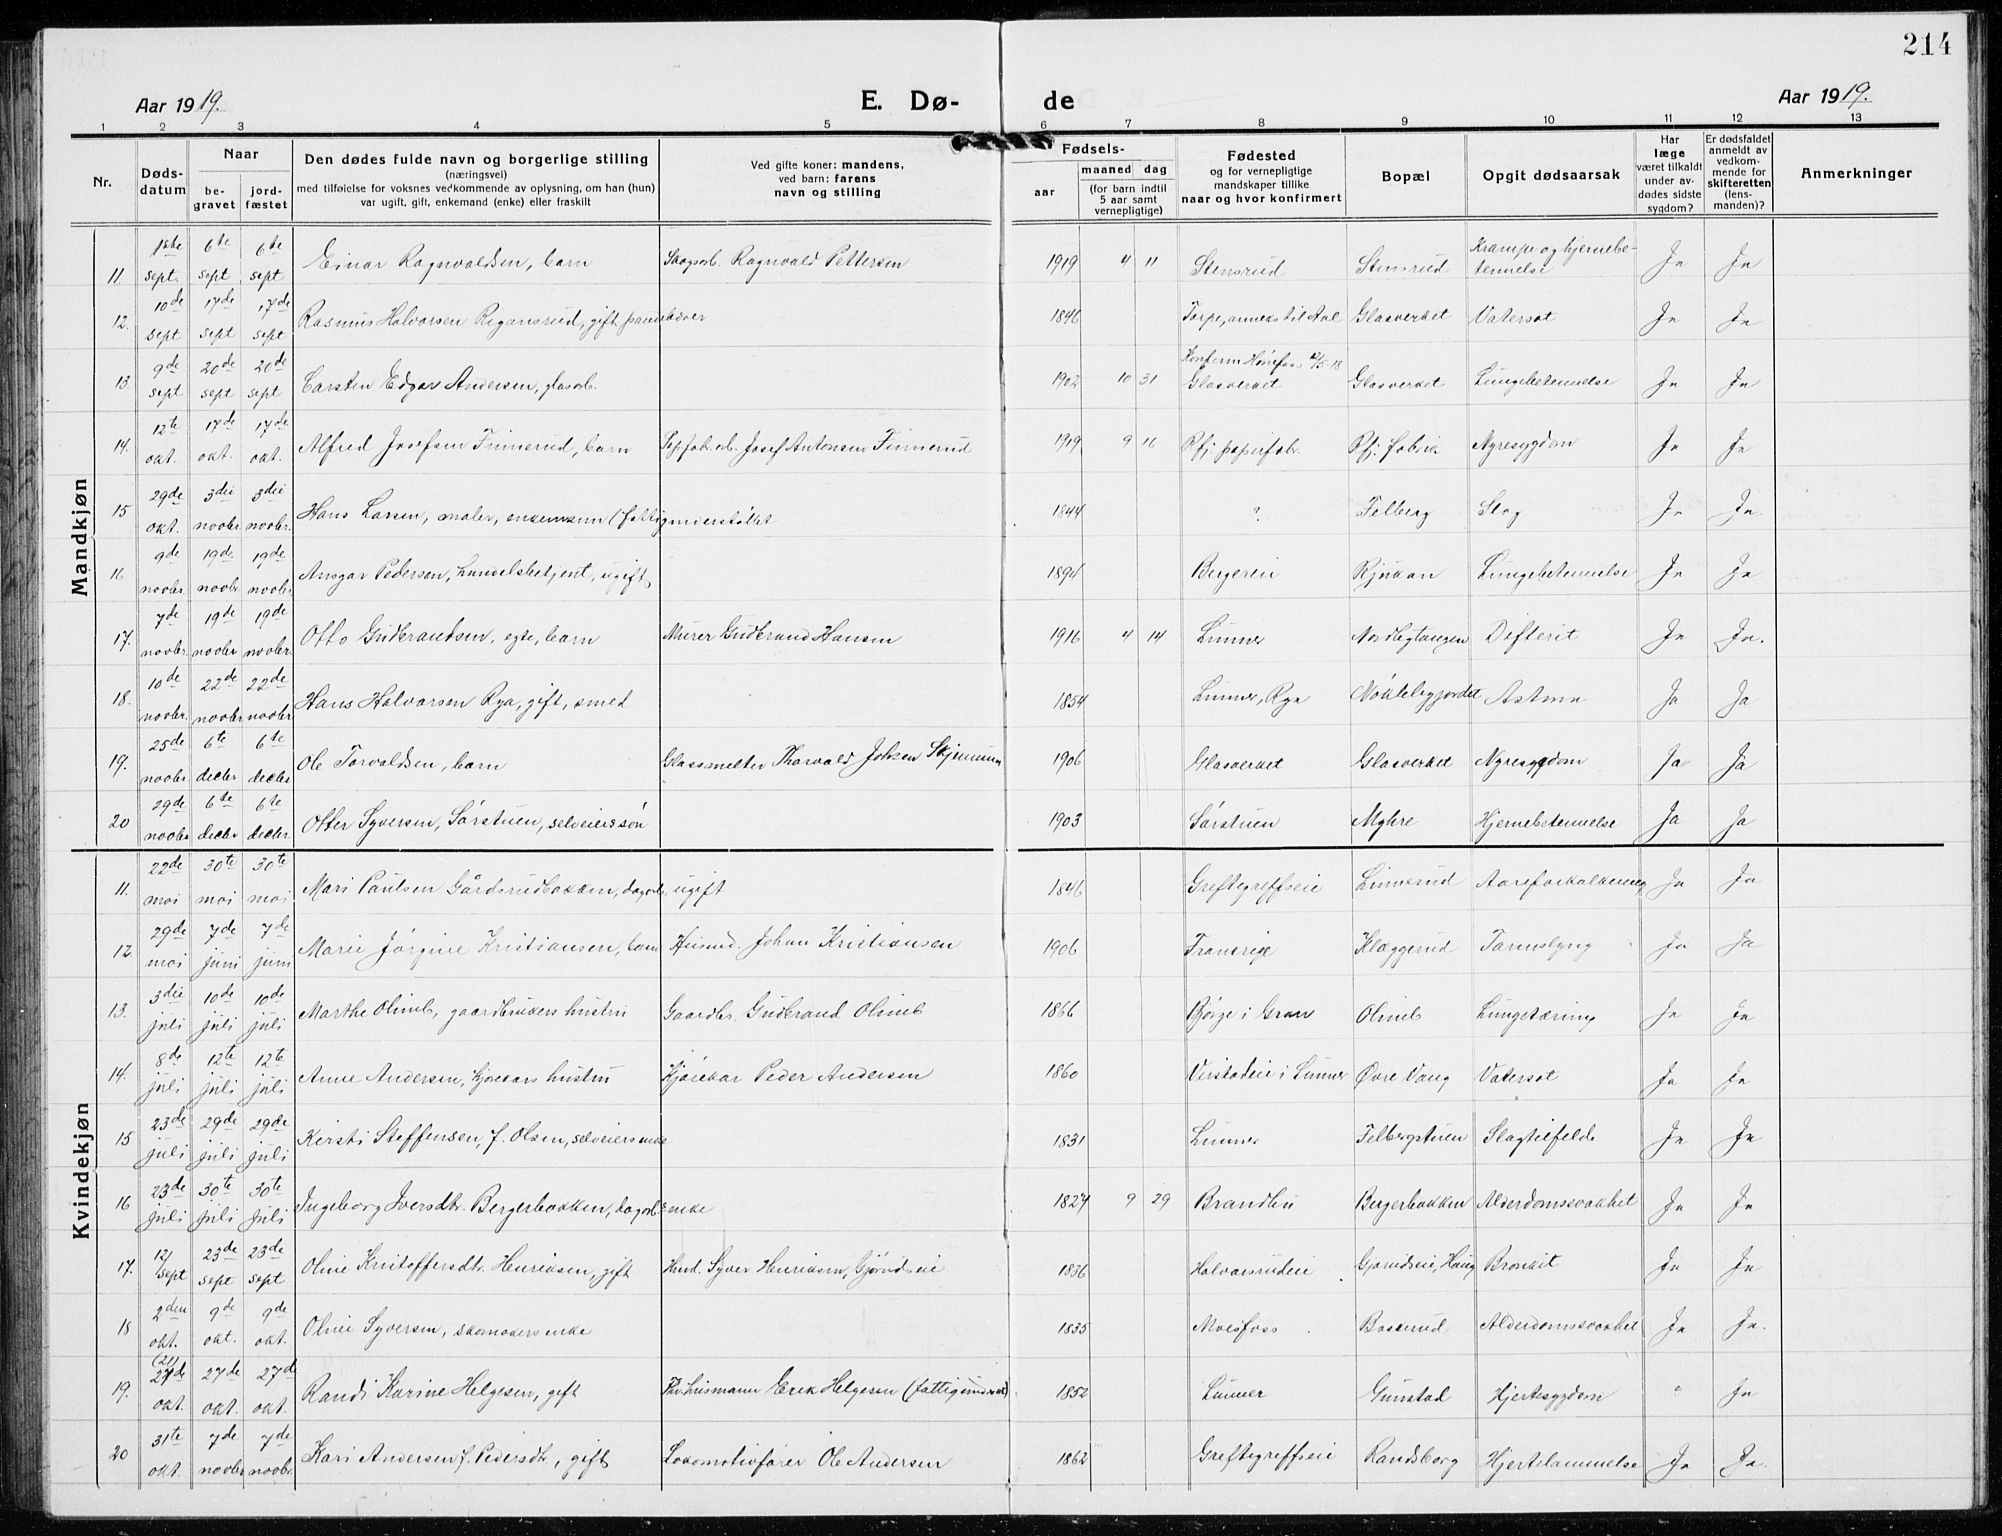 214
Aar 1919.
E. Dø-
de
Aar 1919.
1 2 3 4 5 6 7 8 9 10 11 12 13
Nr.
Døds-
datum
Naar
be-
gravet
jord-
fæstet
Den dødes fulde navn og borgerlige stilling
(næringsvei)
med tilføielse for voksnes vedkommende av oplysning, om han (hun)
var ugift, gift, enkemand (enke) eller fraskilt
Ved gifte koner: mandens,
ved barn: farens
navn og stilling
Fødsels-
aar
maaned dag
(for barn indtil
5 aar samt
vernepligtige)
Fødested
og for vernepligtige
mandskaper tillike
naar og hvor konfirmert
Bopæl
Opgit dødsaarsak
Har
læge
været tilkaldt
under av-
dødes sidste
sygdom?
Er dødsfaldet
anmeldt av
vedkom-
mende for
skifteretten
(lens-
manden)?
Anmerkninger
Mandkjøn
11. 1ste sept. 6te sept. 6te sept Einar Ragnvaldsen, barn Skogsarb. Ragnvald Pettersen 1919 4 11 Stensrud Stensrud Krampe og hjernebe-
tennelse Ja Ja
12. 10de sept 17de sept 17de sept Rasmus Halvorsen gift 1846 Torpe, anneks til Aal Glasverket Vatersot Ja Ja
13 9de sept 20de sept 20de sept Carsten Edgar Andersen, glasarb. 1902 10 31 Konfirm Hønefoss 12/5-18
Glasverket Glasverket Lungebetennelse Ja Ja
14. 12te okt. 17de okt. 17de okt. Alfred Josefsen Finnerud, barn Papfabarb. Josef Antonsen Finnerud 1919 9 16 Rfj. papirfab. Rfj. fabrik Nyresygdom Ja Ja
15 29de okt. 3dei novbr. 3dei novbr. Hans Larsen, maler, enkemann (fattigunderstøttet 1844 ? Felberg Slag Ja Ja.
16 9de novbr. 19de novbr. 19de novbr. Ansgar Pedersen, handelsbetjent, ugift 1894 Bergereie Rjukan Lungebetennelse Ja Ja
17. 7de novbr. 19de novbr 19de novbr. Otto Gudbrandsen, egte, barn Murer Gudbrand Hansen 1916 4 14 Lunner Difterit Ja Ja.
18. 10de novbr. 22de novbr. 22de novbr. Hans Halvorsen Rya, gift, smed 1854 Lunner, Rya Nøklebygjordet Astma Ja Ja
19. 25de novbr 6te decbr 6te decbr Ole Torvaldsen, barn Glassmelter Thorvald Johsen 1906 Glasverket Glasverket Nyresygdom Ja Ja
20 29de novbr 6te decbr 6te decbr. Otter Syversen, Sørstuen, selveierssøn 1903 Sørstuen Myhre Hjernebetennelse Ja Ja
Kvindekjøn
11. 22de mai 30te mai 30te mai Mari Paulsen Gårdsrudbakken, dagarb, ugift 1846 Greftegreffseie Linnerud Aareforkalkening Ja Ja
12. 29de mai 7de juni 7de juni Marie Jørgine Kristiansen, barn Husmd. Johan Kristiansen 1906 Klæggerud Tarmslyng Ja Ja
13. 3dei juli 10de juli 10de juli Marthe Olimb, gaardbrukers hustru Gaardbr. Gudbrand Olimb 1866 Bjørge i Gran Olimb Lungetæring Ja Ja
14. 8de juli 12te juli 12te juli Anne Andersen, kjørekars hustru Kjørekar Peder Andersen 1860 Virstadeie i Lunner Øvre Vang Vatersot Ja Ja
15 23de juli 29de juli 29de juli Kirsti Steffensen, f. Olsen, selveiers enke 1831 Lunner Felbergstuen Slagtilfelde Ja Ja
16 23de juli 30te juli 30te juli Ingeborg Iversdtr. Bergerbakken, dagarb. enke 1827 9 29 Brandbu Bergerbakken Alderdomssvakhet Ja Ja
17. 12/sept 23de sept 23de sept Oline Kristoffersdtr. Henriksen, gift Hmd. Syver Henriksen, Gjørudseie 1836 Halvorsrudeie Gjørudseie, Haug Bronkit Ja Ja
18 2den okt. 9de okt. 9de okt. Oline Syversen, skomakers enke 1835 Moesfoss Bakkerud Alderdomssvakhet Ja Ja.
19. (21) 27de okt. 27de okt. 27de okt. Randi Karine Helgesen, gift Fhv. husmann Erik Helgesen (fattigunderst) 1852 Lunner Grinstad Hjertesygdom " Ja
20 31te okt. 7de novbr 7de novbr. Kari Andersen f. Pedersdtr, gift Lokomotivfører Ole Andersen 1862 Greftegreffseie Randsborg Hjertelammelse Ja Ja.